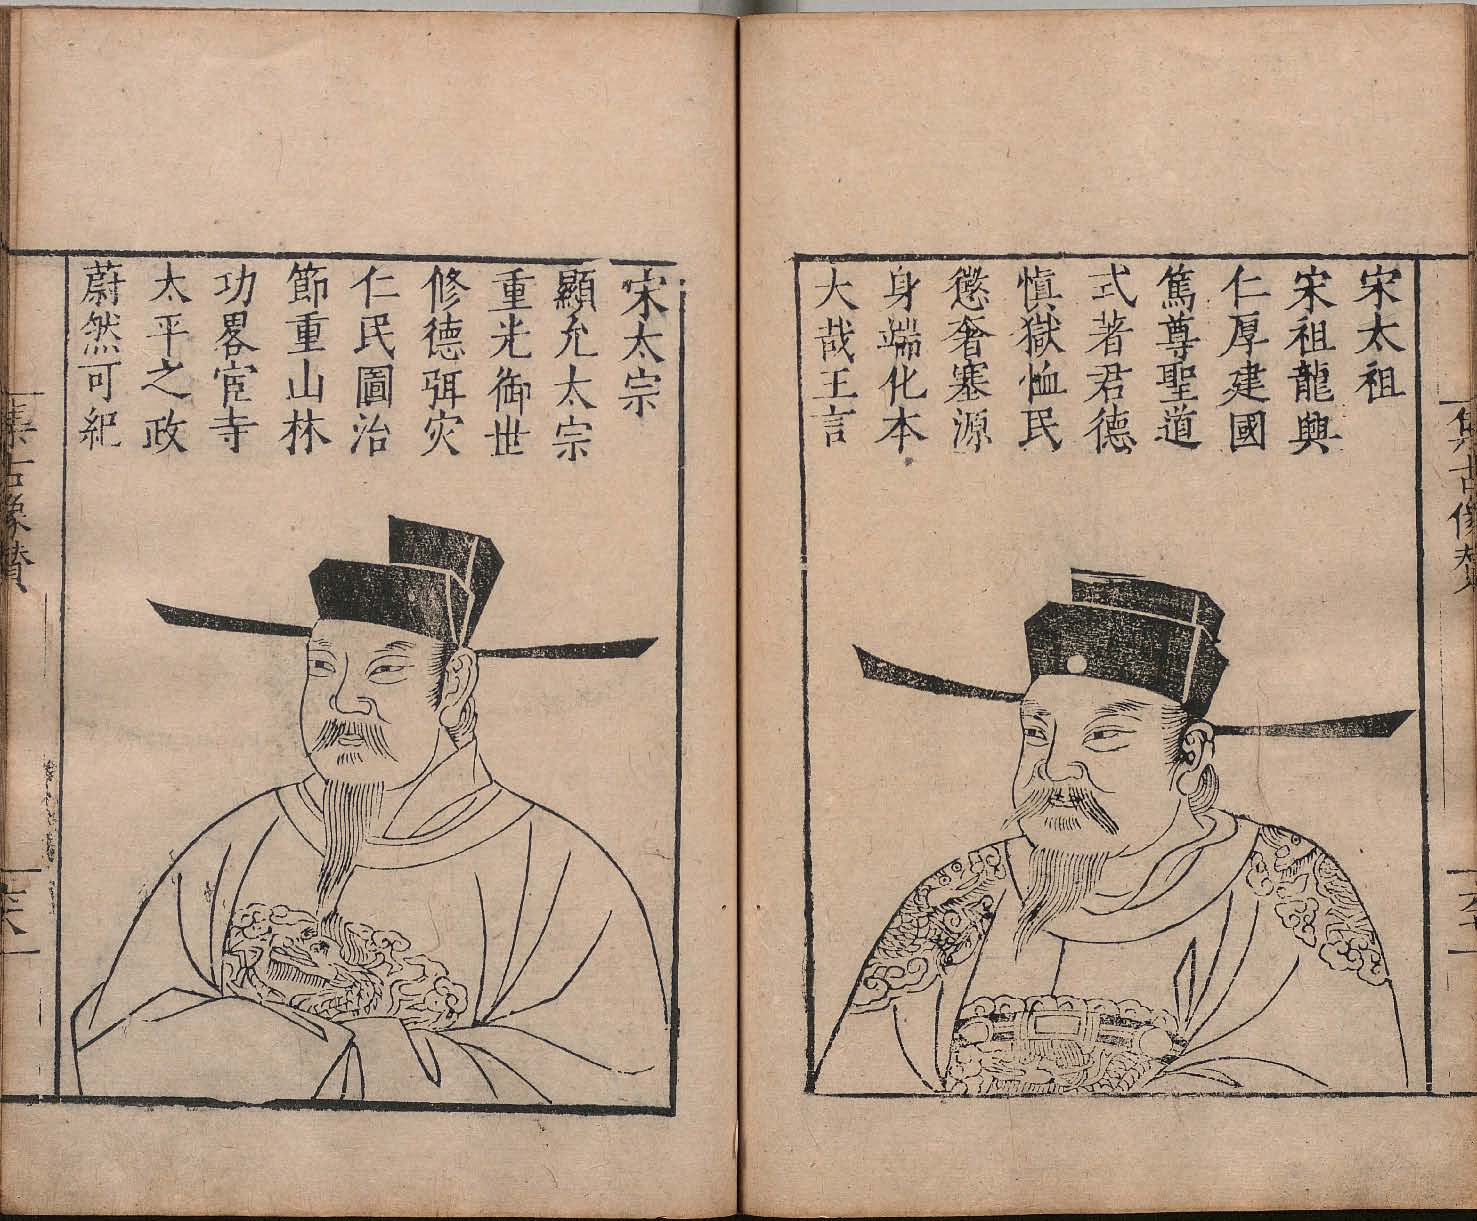 宋太祖
宋祖龍興
仁厚建國
篤尊聖道
式著君德
慎獄恤民
懲奢塞源
身端化本
大哉王言
集古像贊
六七
宋太宗
顯允太宗
重光御世
修德弭灾
仁民圖治
節重山林
功畧宦寺
太平之政
蔚然可紀
集古像贊
六八